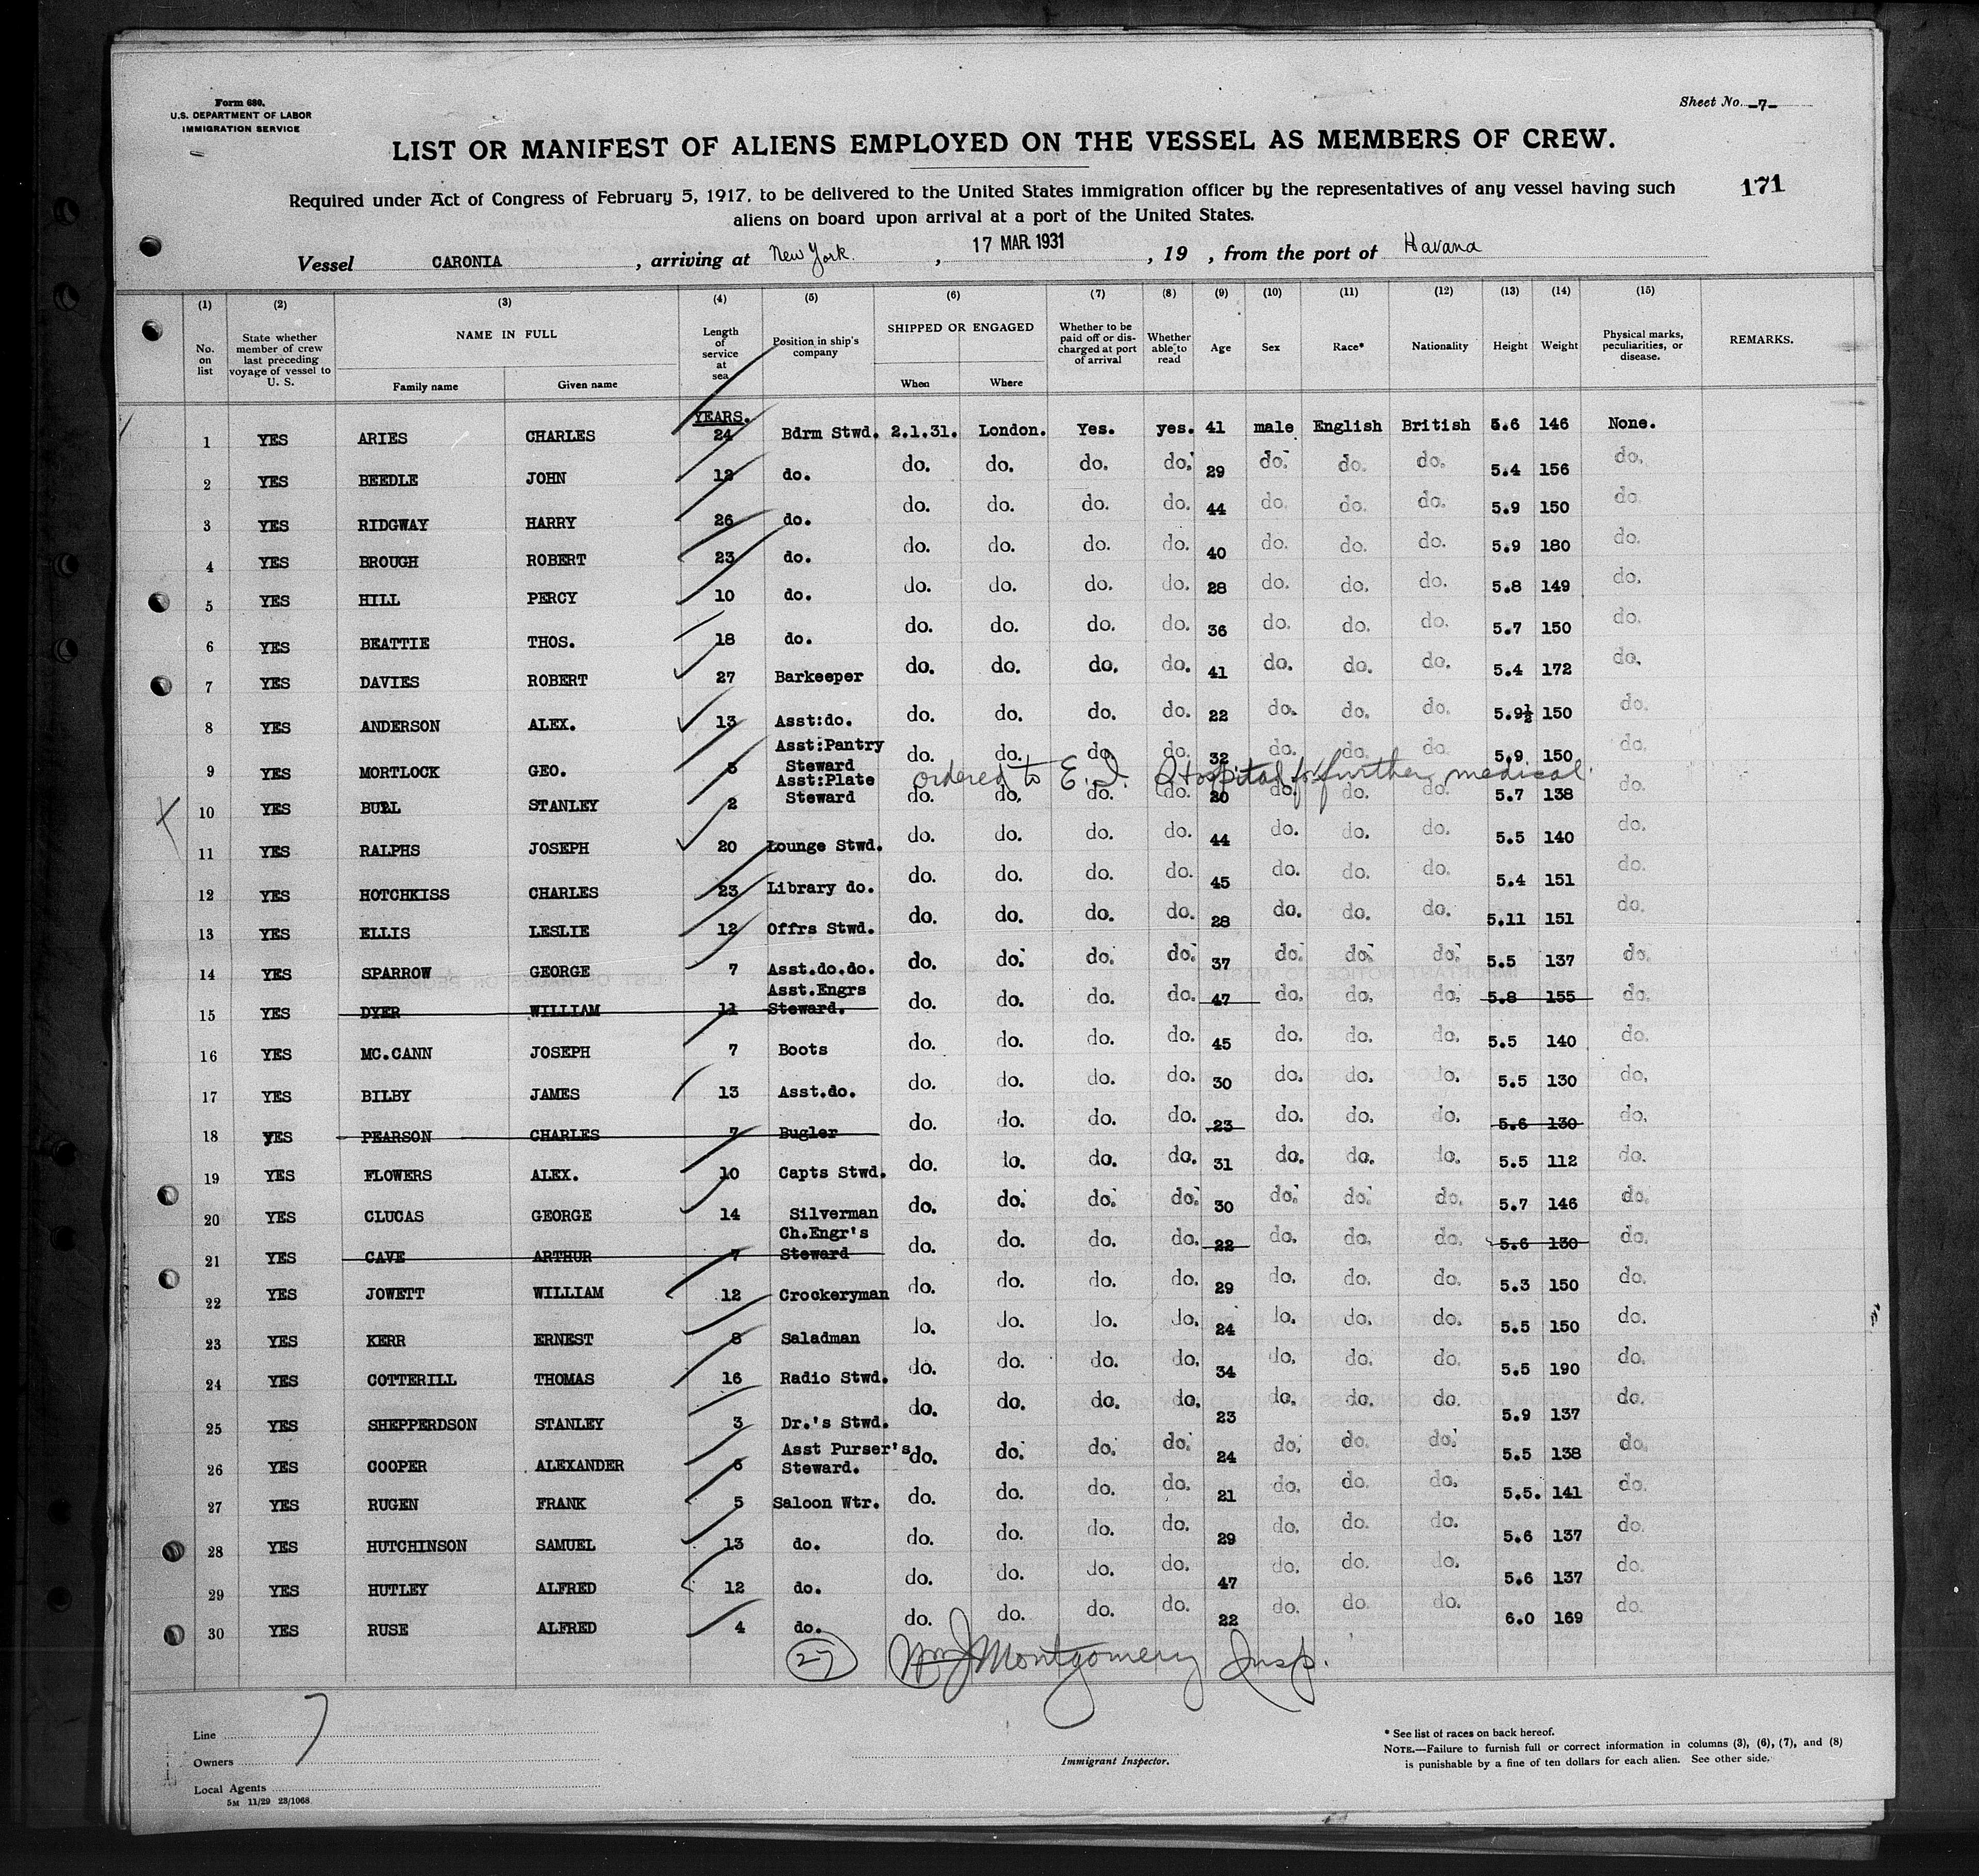 Form 680.
U.S. DEPARTMENT OF LABOR
IMMIGRATION SERVICE
Sheet No. -7-
LIST OR MANIFEST OF ALIENS EMPLOYED ON THE VESSEL AS MEMBERS OF CREW.
171
Required under Act of Congress of February 5, 1917, to be delivered to the United States immigration officer by the representatives of any vessel having such
aliens on board upon arrival at a port of the United States.
Vessel CARONIA, arriving at New York, 17 MAR 1931, 19 , from the port of Havana
(1) (2) (3) (4) (5) (6) (7) (8) (9) (10) (11) (12) (13) (14) (15)
No. on list State whether member of crew last preceding voyage of vessel to U. S. NAME IN FULL Family name Given name Length of service at sea Position in ship's company SHIPPED OR ENGAGED When Where Whether to be paid off or discharged at port of arrival Whether able to read Age Sex Race* Nationality Height Weight Physical marks, peculiarities, or disease. REMARKS.
YEARS.
1 YES ARIES CHARLES 24 Bdrm Stwd. 2.1.31. London. Yes. yes. 41 male English British 5.6 146 None.
2 YES BEEDLE JOHN 12 do. do. do. do. do. 29 do. do. do. 5.4 156 do.
3 YES RIDGWAY HARRY 26 do. do. do. do. do. 44 do. do. do. 5.9 150 do.
4 YES BROUGH ROBERT 23 do. do. do. do. do. 40 do. do. do. 5.9 180 do.
5 YES HILL PERCY 10 do. do. do. do. do. 28 do. do. do. 5.8 149 do.
6 YES BEATTIE THOS. 18 do. do. do. do. do. 36 do. do. do. 5.7 150 do.
7 YES DAVIES ROBERT 27 Barkeeper do. do. do. do. 41 do. do. do. 5.4 172 do.
8 YES ANDERSON ALEX. 13 Asst:do. do. do. do. do. 22 do. do. do. 5.9½ 150 do.
9 YES MORTLOCK GEO. 5 Asst:Pantry Steward do. do. do. do. 32 do. do. do. 5.9 150 do.
ordered to E. I. Hospital for further medical
10 YES BULL STANLEY 2 Asst:Plate Steward do. do. do. do. 20 do. do. do. 5.7 138 do.
11 YES RALPHS JOSEPH 20 Lounge Stwd. do. do. do. do. 44 do. do. do. 5.5 140 do.
12 YES HOTCHKISS CHARLES 23 Library do. do. do. do. do. 45 do. do. do. 5.4 151 do.
13 YES ELLIS LESLIE 12 Offrs Stwd. do. do. do. do. 28 do. do. do. 5.11 151 do.
14 YES SPARROW GEORGE 7 Asst.do.do. do. do. do. do. 37 do. do. do. 5.5 137 do.
15 YES DYER WILLIAM 11 Asst.Engrs Steward. do. do. do. do. 47 do. do. do. 5.8 155 do.
16 YES MC.CANN JOSEPH 7 Boots do. do. do. do. 45 do. do. do. 5.5 140 do.
17 YES BILBY JAMES 13 Asst.do. do. do. do. do. 30 do. do. do. 5.5 130 do.
18 YES PEARSON CHARLES 7 Bugler do. do. do. do. 23 do. do. do. 5.6 130 do.
19 YES FLOWERS ALEX. 10 Capts Stwd. do. do. do. do. 31 do. do. do. 5.5 112 do.
20 YES CLUCAS GEORGE 14 Silverman do. do. do. do. 30 do. do. do. 5.7 146 do.
21 YES CAVE ARTHUR 7 Ch.Engr's Steward do. do. do. do. 22 do. do. do. 5.6 130 do.
22 YES JOWETT WILLIAM 12 Crockeryman do. do. do. do. 29 do. do. do. 5.3 150 do.
23 YES KERR ERNEST 8 Saladman do. do. do. do. 24 do. do. do. 5.5 150 do.
24 YES COTTERILL THOMAS 16 Radio Stwd. do. do. do. do. 34 do. do. do. 5.5 190 do.
25 YES SHEPPERDSON STANLEY 3 Dr.'s Stwd. do. do. do. do. 23 do. do. do. 5.9 137 do.
26 YES COOPER ALEXANDER 6 Asst Purser's Steward. do. do. do. do. 24 do. do. do. 5.5 138 do.
27 YES RUGEN FRANK 5 Saloon Wtr. do. do. do. do. 21 do. do. do. 5.5. 141 do.
28 YES HUTCHINSON SAMUEL 13 do. do. do. do. do. 29 do. do. do. 5.6 137 do.
29 YES HUTLEY ALFRED 12 do. do. do. do. do. 47 do. do. do. 5.6 137 do.
30 YES RUSE ALFRED 4 do. do. do. do. do. 22 do. do. do. 6.0 169 do.
27 Wm J Montgomery Insp.
Line
Owners
Local Agents
5M 11/29 23/1068
7
Immigrant Inspector.
* See list of races on back hereof.
NOTE.—Failure to furnish full or correct information in columns (3), (6), (7), and (8)
is punishable by a fine of ten dollars for each alien. See other side.